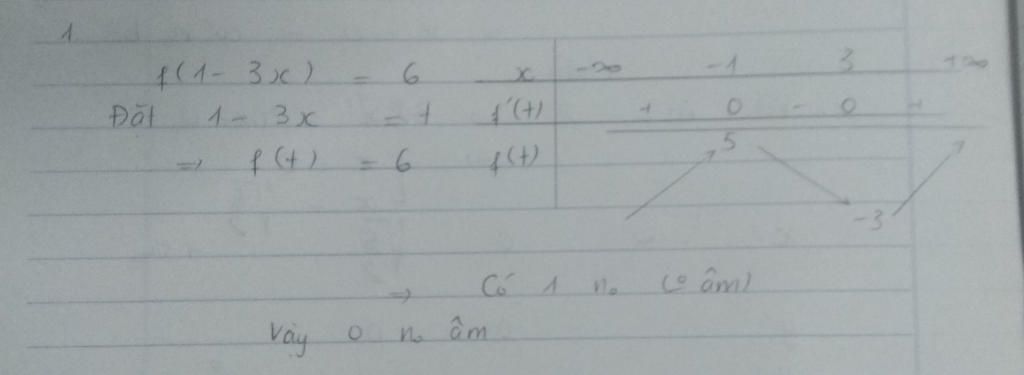 1
f(1 - 3x) = 6 x -∞ -1 3 +∞
Đặt 1 - 3x = t f'(t) + 0 - 0 +
⇒ f(t) = 6 f(t) 5
-3
⇒ Có 1 no (0 âm)
Vậy 0 no âm